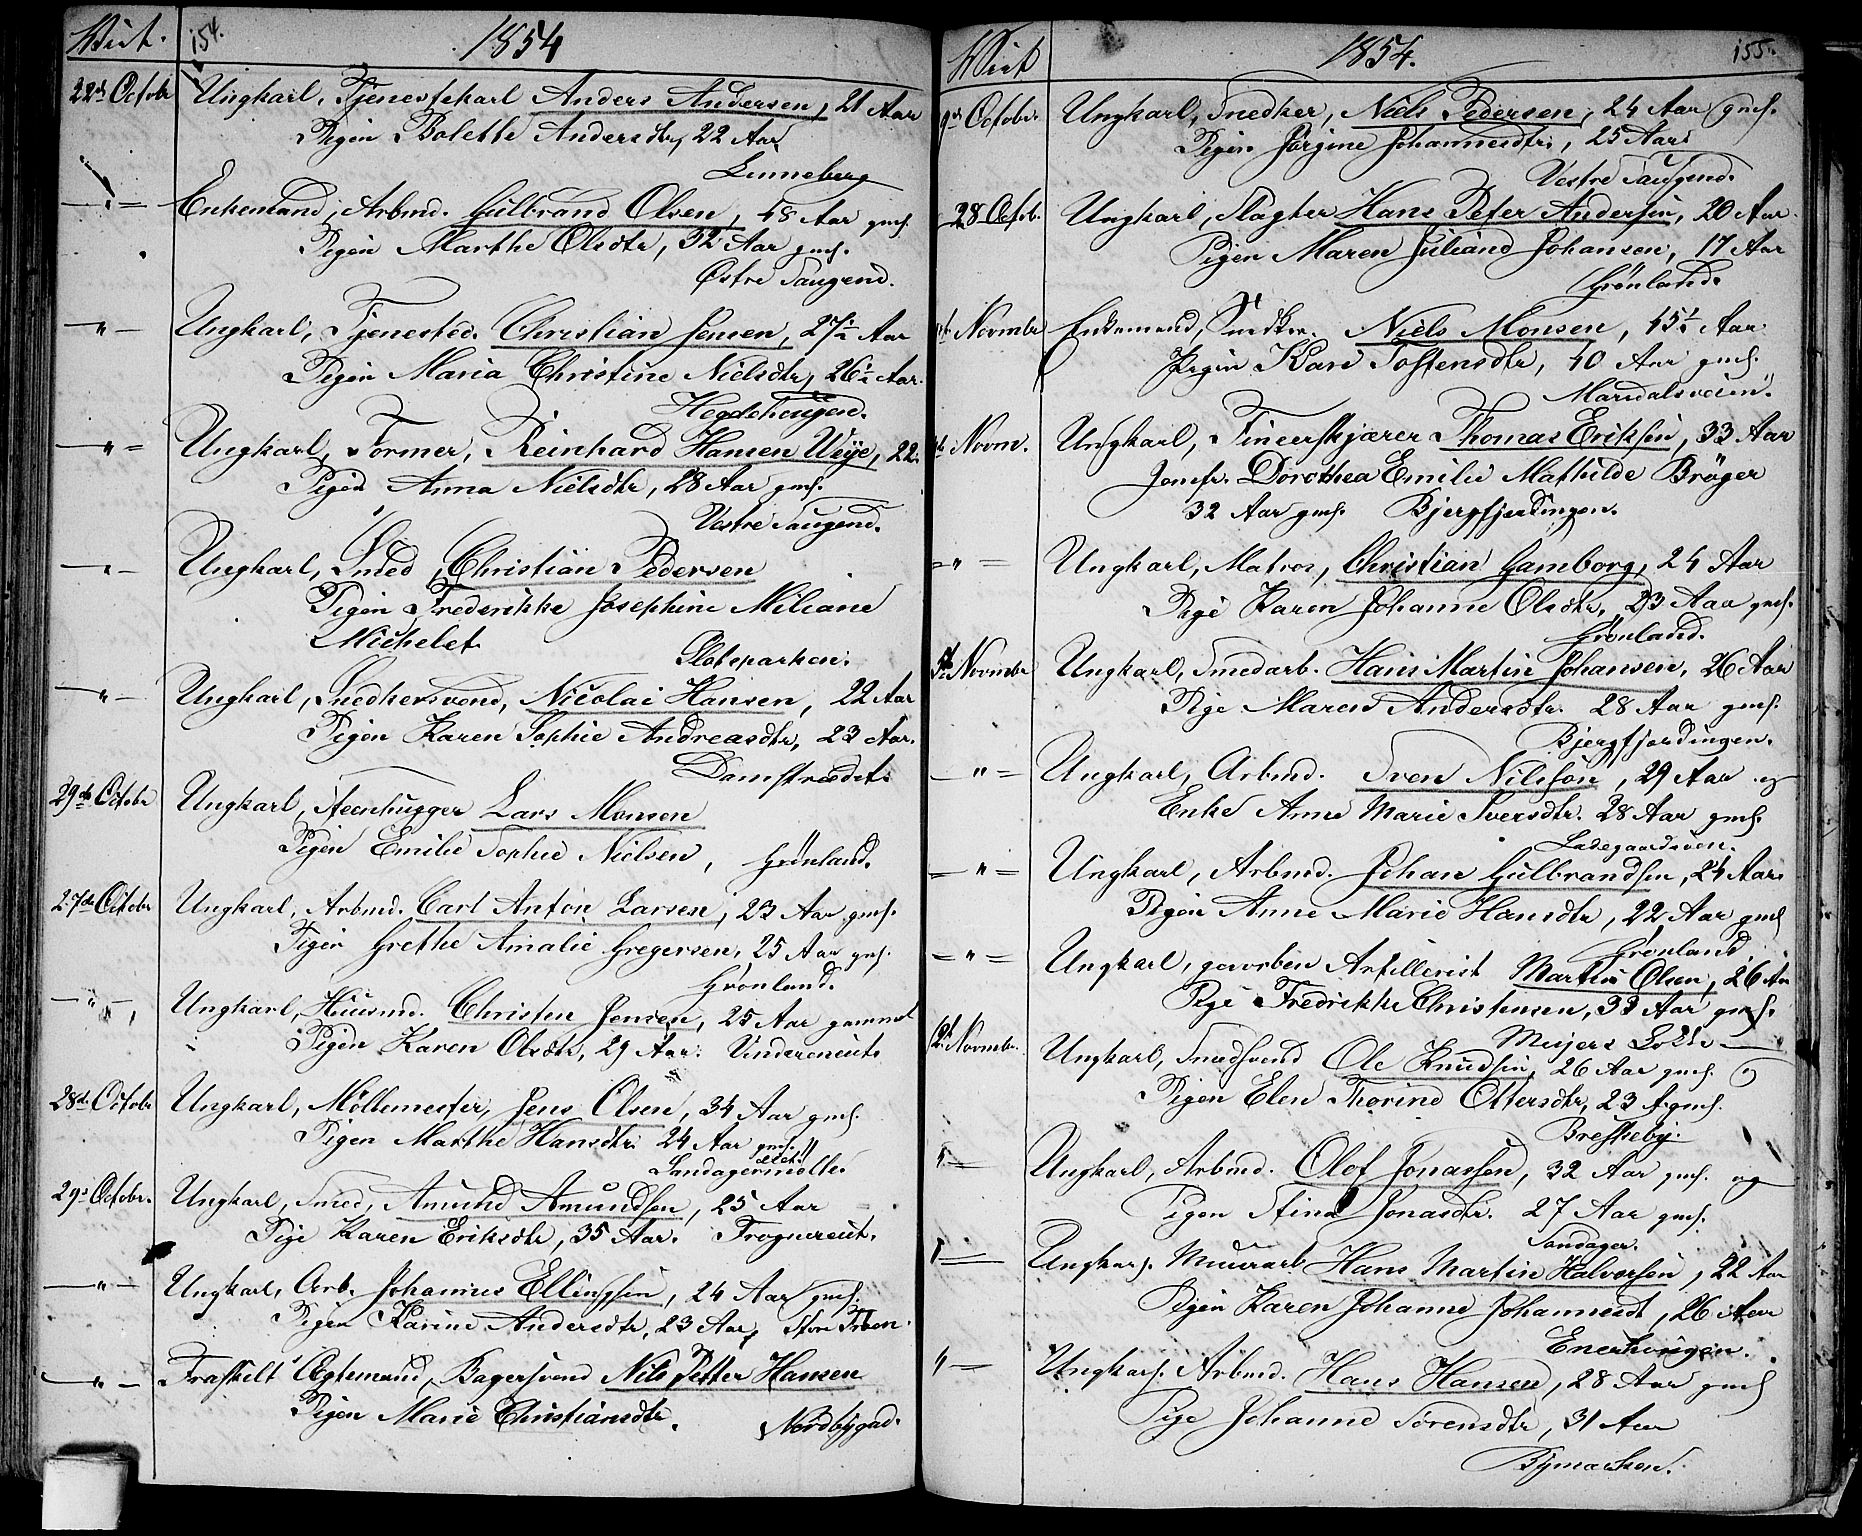 Viet. 154. 1854
22de Octobr Ungkarl, Tjenestekarl Anders Andersen, 21 Aar
Pigen Bolette Andersdtr, 22 Aar
Linneberg
— " — Enkemand, Arbmd. Gulbrand Olsen, 48 Aar gml.
Pigen Marthe Olsdtr, 32 Aar gml.
Østre Saugend.
— " — Ungkarl, Tjenested. Christian Jensen, 27½ Aar
Pigen Maria Christine Nielsdtr, 26½ Aar.
Hegdehaugen.
— " — Ungkarl, Former, Reinhard Hansen Weye, 22.
Pigen Anna Nielsdtr, 28 Aar gml.
Vestre Saugend.
— " — Ungkarl, Smed, Christian Pedersen
Pigen Frederikke Josephine Miliane
Michelet
Slotsparken.
— " — Ungkarl, Snedkersvend, Nicolai Hansen, 22 Aar
Pigen Karen Sophie Andreasdtr, 23 Aar.
Damstrædet.
29de Octobr Ungkarl, Steenhugger Lars Monsen
Pigen Emilie Sophie Nielsen, Grönland.
27de Octobr Ungkarl, Arbmd. Carl Anton Larsen, 23 Aar gml.
Pigen Grethe Amalie Gregersen, 25 Aar gml.
Grønland.
— " — Ungkarl, Huusmd. Christen Jensen, 25 Aar gammel
Pigen Karen Olsdtr, 29 Aar. Vinderneiet
28de Octobr Ungkarl, Möllemester, Jens Olsen, 34 Aar gml.
Pigen Marthe Hansdtr. 24 Aar gml.
Sandagermølle.
29d Octobr. Ungkarl, Smed, Amund Amundsen, 25 Aar
Pige Karen Eriksdtr, 35 Aar. Frognereiet.
— " — Ungkarl, Arb. Johannes Ellingsen, 24 Aar gml.
Pigen Karine Andersdtr, 23 Aar, Store Frøen.
— " — Fraskilt Ægtemand, Bagersvend Nils Petter Hansen
Pigen Marie Christiansdtr. Nordbygad.
Viet 1854. 155.
9de Octobr. Ungkarl, Snedker, Niels Pedersen, 24 Aar gml.
Pigen Jørgine Johannesdtr, 25 Aar
Vestre Saugend.
28 Octob. Ungkarl, Slagter Hans Peter Andersen, 20 Aar.
Pigen Maren Juliane Johansen, 17 Aar
Grønland.
Novmbr Enkemand, Snedker. Niels Monsen, 45½ Aar
Pigen Kari Tostensdtr, 40 Aar gml.
Maridalsveien.
Novm. Ungkarl, Fineerskjærer Thomas Eriksen, 33 Aar
Jomfr. Dorothea Emilie Mathilde Bröger
32 Aar gml. Bjergfjerdingen.
— " — Ungkarl, Matros, Christian Gamborg, 24 Aar
Pige Karen Johanne Olsdtr, 23 Aar gml.
Grønland.
5te Novmbr Ungkarl, Smedarb. Hans Martin Johansen, 26 Aar
Pige Maren Andersdtr. 28 Aar gml.
Bjergfjerdingen.
— " — Ungkarl, Arbmd. Sven Nilsson, 29 Aar og
Enke Anne Marie Iversdtr. 28 Aar gml.
Ladegaardsøen.
— " — Ungkarl, Arbmd. Johan Gulbrandsen, 24 Aar.
Pigen Anne Marie Hansdtr, 22 Aar gml
Grønland
— " — Ungkarl, gevorben Artillerist Martin Olsen, 26 Aar
Pige Fredrikke Christensen, 33 Aar gml.
Meijers Løkke
12t Novmbr. Ungkarl, Smedsvend Ole Knudsen, 26 Aar gml. og
Pigen Elen Thorine Ottersdtr, 23 A. gml.
Breskeby.
" — Ungkarl, Arbmd. Olof Jonassen, 32 Aar gml. og
Pigen Stina Jonasdtr. 27 Aar gml.
Sandager.
" — Ungkarl. Muurarb. Hans Martin Halvorsen, 22 Aar
Pigen Karen Johanne Johannesdt, 26 Aar
Enerhougen.
" — Ungkarl. Arbmd. Hans Hansen, 28 Aar gml
Pige Johanne Sørensdtr, 31 Aar
Bymarken.